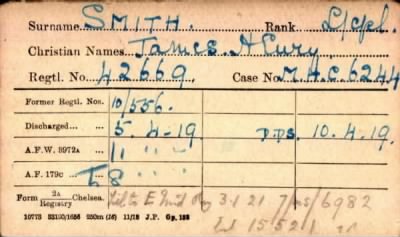 Surname SMITH. Rank L/cpl.
Christian Names James Henry
Regtl. No. 42669. Case No. M.H.C. 6244
Former Regtl. Nos. 10/556.
Discharged 5.4-19. D.D.S. 10.4.19.
A.F.W. 3972A 11 " "
A.F. 179c 58
Form 2A Registry Chelsea. E 3.1 21 7/MS/6982
15521
10773 53190/1686 250m (16) 11/18 J.P. Gp. 138